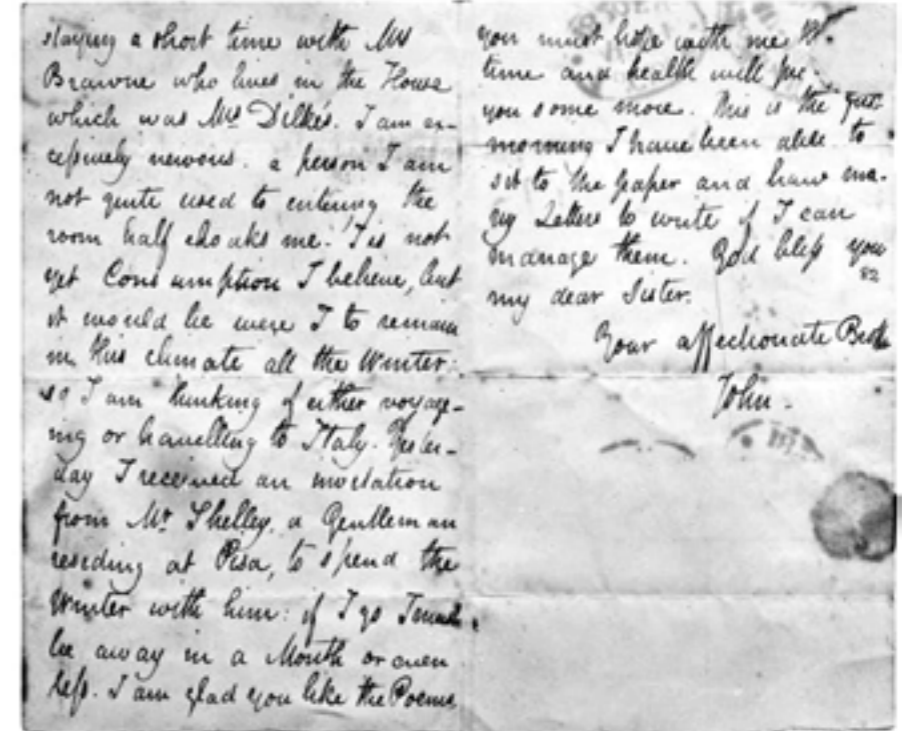 staying a short time with Mrs
Brawne who lives in the House
which was Mrs Dilke's. I am ex-
cessively nervous. a person I am
not quite used to entering the
room half choaks me. 'Tis not
yet Consumption I believe, but
it would be were I to remain
in this climate all the Winter:
so I am thinking of either voyag-
ing or travelling to Italy. Yester-
day I received an invitation
from Mr Shelley, a Gentleman
residing at Pisa, to spend the
Winter with him: if I go I must
be away in a Month or even
less. I am glad you like the Poems
you must hope with me that
time and health will
you some more. This is the first
morning I have been able to
sit to the paper and have ma-
ny Letters to write if I can
manage them. God bless you
my dear Sister.
82
Your affectionate Broth
John.